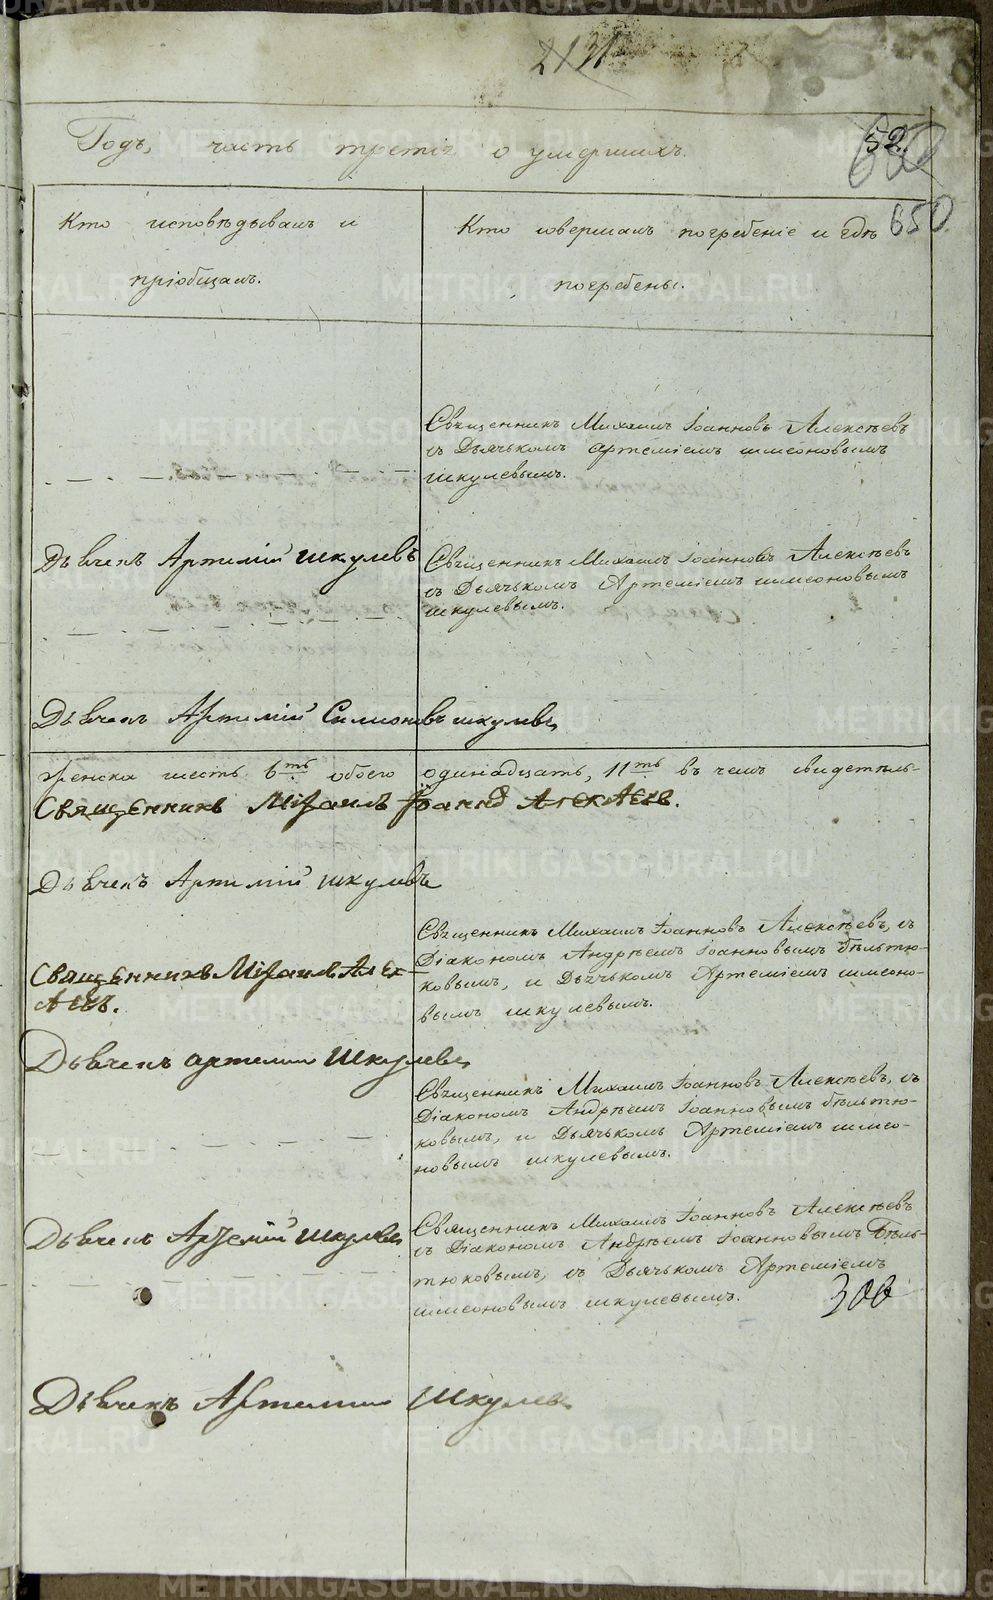 213
Годъ, часть третія о умершихъ.
52
650
Кто исповѣдывалъ и
пріобщалъ.
Кто совершалъ погребеніе и гдѣ
погребены.
Священникъ Михаилъ Іоанновъ Алексѣевъ
съ Дьячькомъ Артеміемъ симеоновымъ
шкулевымъ.
Дьячекъ Артемій шкулевъ
Священникъ Михаилъ Іоанновъ Алексѣевъ
съ Дьячькомъ Артеміемъ симеоновымъ
шкулевымъ.
Дьячекъ Артемій Симионовъ шкулевъ
женска шесть 6ть обоего одинадцать, 11ть въ чемъ свидетель-
Священникъ Михаилъ Іоаннъ Алексѣевъ.
Дьячекъ Артемій шкулевъ
Священникъ Михаилъ Алек-
сѣевъ.
Священникъ Михаилъ Іоанновъ Алексѣевъ, съ
Діакономъ Андрѣемъ Іоанновымъ бѣльтю-
ковымъ, и Дьячькомъ Артеміемъ симео-
вымъ шкулевымъ.
Дьячекъ артемии Шкулевъ
Священникъ Михаилъ Іоанновъ Алексѣевъ, съ
Діакономъ Андрѣемъ Іоанновымъ бѣльтю-
ковымъ, и Дьячькомъ Артеміемъ симео-
новымъ шкулевымъ.
Дьячекъ Артемій Шкулевъ
Священникъ Михаилъ Іоанновъ Алексѣевъ
съ Діакономъ Андрѣемъ Іоанновымъ Бѣль-
тюковымъ, съ Дьячькомъ Артеміемъ
симеоновымъ шкулевымъ.
300
Дьячекъ Артемии Шкулевъ
METRIKI.GASO-URAL.RU